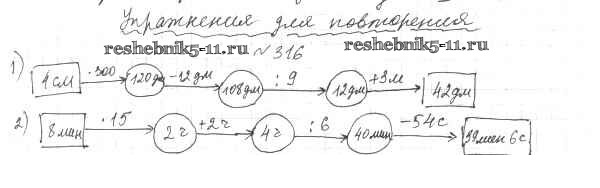 Упражнения для повторения
reshebnik5-11.ru №316 reshebnik5-11.ru
1) 4 см ·300 120дм -12дм 108дм :9 12дм +3м 42дм
2) 8 мин ·15 2 ч +2ч 4ч :6 40мин -54с 39мин 6с